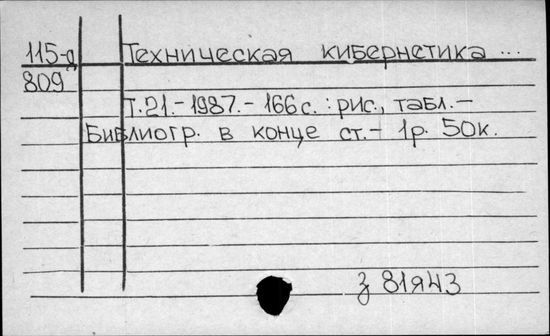 115-д Техническая кибернетика ...
809
Т.21.-1987.-166с.:рис., табл.-
Библиогр. в конце ст.- 1р. 50к.
з 81я43